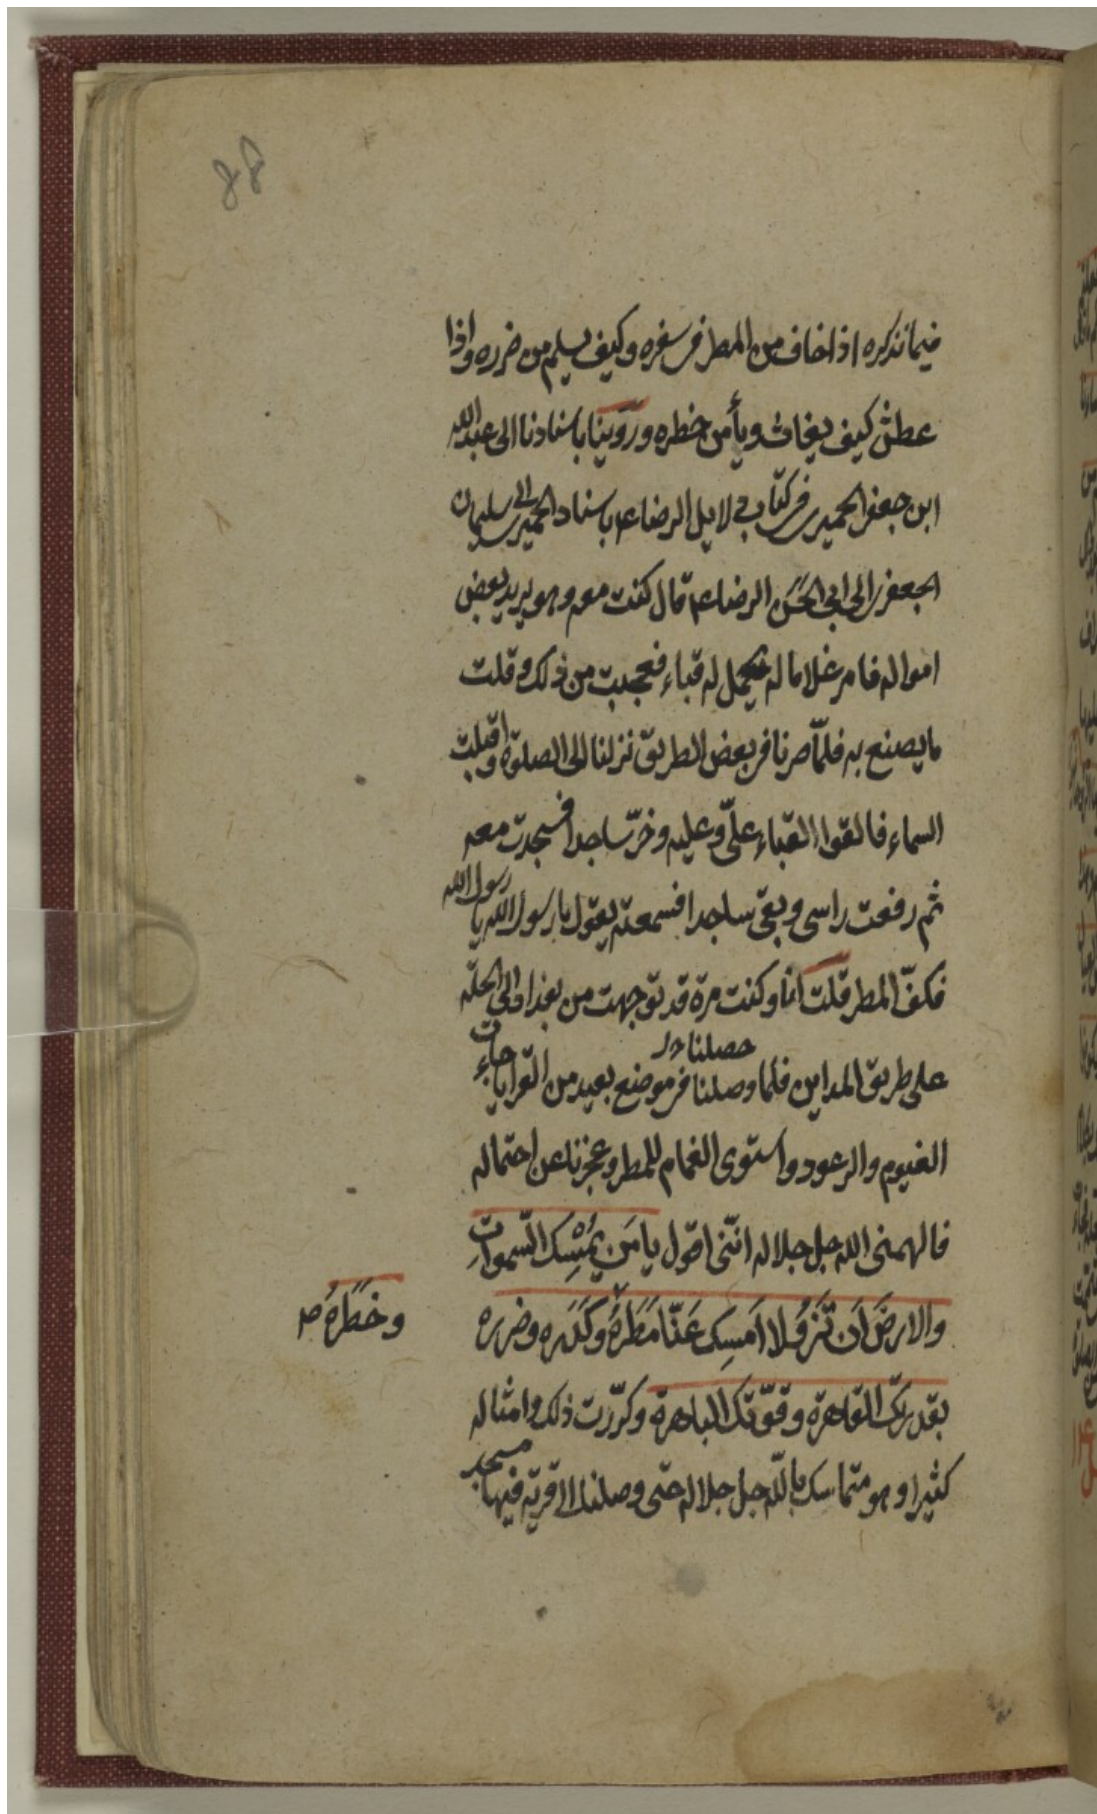 88
فيما نذكره اذا خاف من المطر فى سفره وكيف يسلم من ضرره واذا
عطش كيف يغاث ويأمن خطره ورَوَيْنا باسنادنا الى عبد الله
ابن جعفر الحميرى فى كتاب دلايل الرضا ع باسناد الحميرى الى سليمان
الجعفرى الى ابى الحَسَن الرضا ع قال كنت معه وهو يريد بعض
امواله فامر غلاما له يحمل له قباء فعجبت من ذلك وقلت
ما يصنع به فلمّا صرنا فى بعض الطريق نزلنا الى الصلوة واقبلت
السماء فالقوا القباء علىّ وعليه وخرّ ساجدا فسجدت معه
ثم رفعت راسى وبقى ساجدا فسمعته يقول يا رسول الله يا رسول الله
فكفّ المطر قلت انا وكنت مرة قد توجهت من بغداد الى الحلّه
حصلنا
على طريق المداين فلما وصلنا فى موضع بعيد من القرايا جاءت
الغيوم والرعود واستوى الغمام للمطر وعجزنا عن احتماله
فالهمنى الله جل جلاله انّنى اقول يا مَن يُمْسِك السّموات
والارضَ اَن تَزُولا اَمسِك عَنّا مَطَرَهُ وكَدَره وضرره
وخَطَرَهُ ص
بقدرتك القاهرة وقوّتك الباهرة وكرّرت ذلك وامثاله
كثيرا وهو متماسك بالله جل جلاله حتى وصلنا الى قرية فيها مسجد